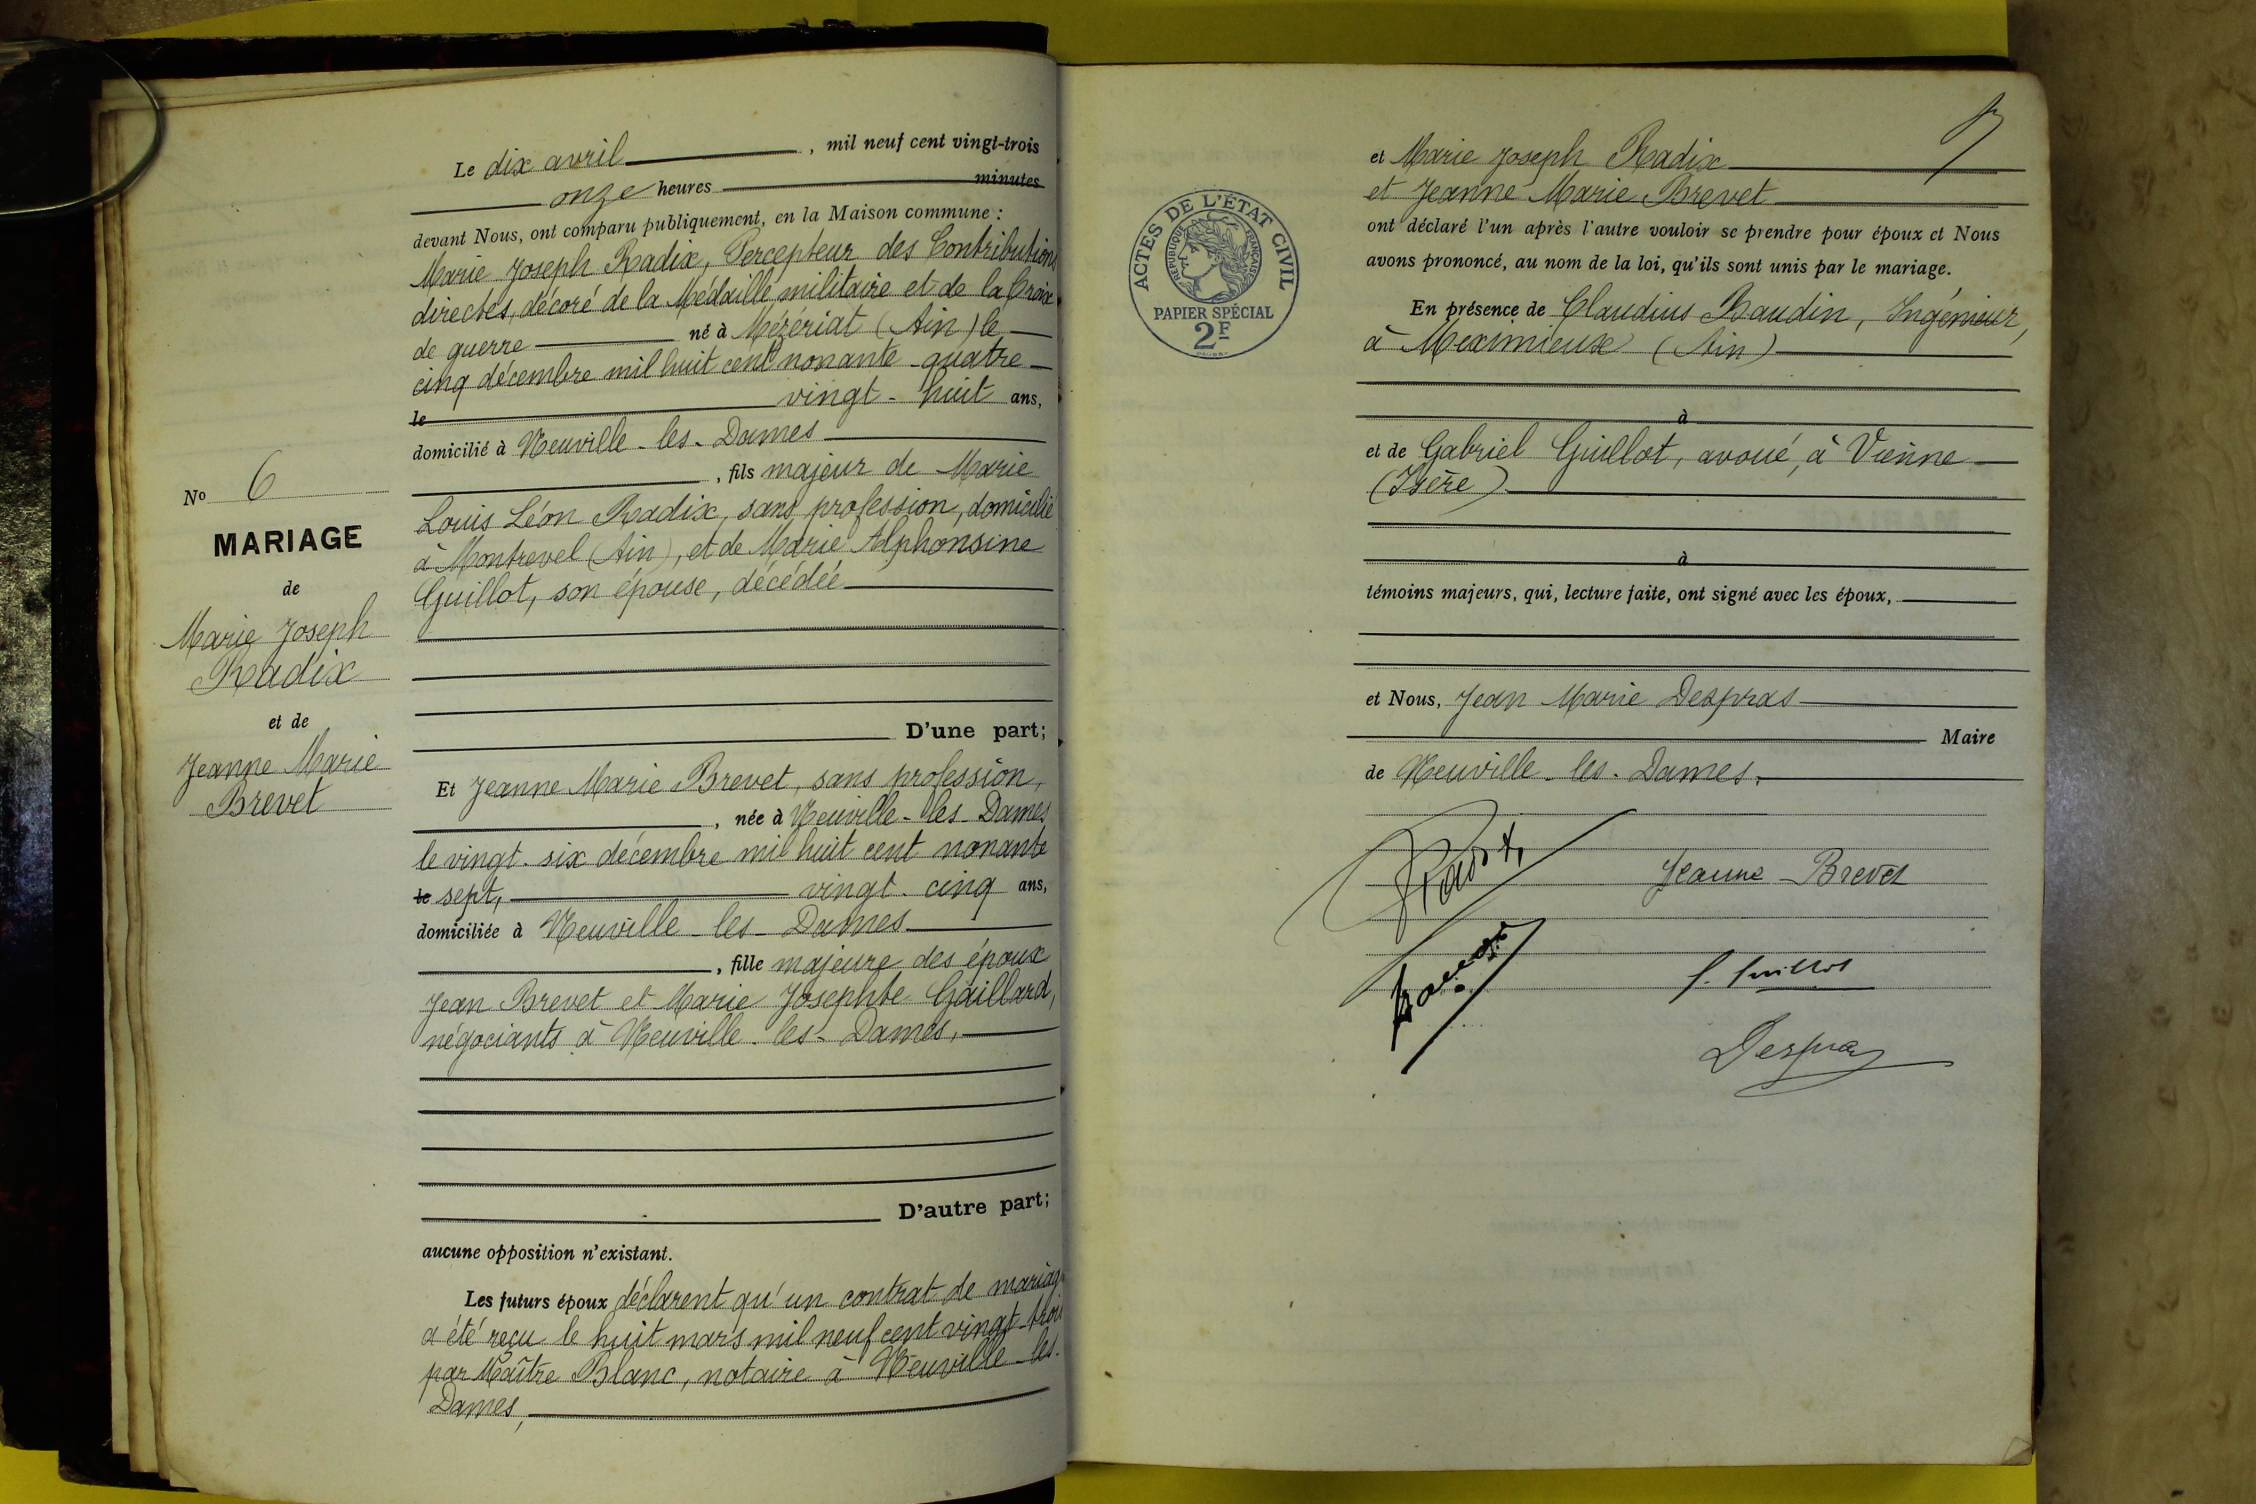 Le dix avril , mil neuf cent vingt-trois
onze heures minutes
devant Nous, ont comparu publiquement, en la Maison commune :
Marie Joseph Radix, Percepteur des Contributions
directes, décoré de la Médaille militaire et de la Croix
de guerre né à Mézériat (Ain) le
cinq décembre mil huit cent nonante quatre
le vingt-huit ans,
domicilié à Neuville-les-Dames
, fils majeur de Marie
Louis Léon Radix, sans profession, domicilié
à Montrevel (Ain), et de Marie Alphonsine
Guillot, son épouse, décédée
No 6
MARIAGE
de
Marie Joseph
Radix
et de
Jeanne Marie
Brevet
D'une part;
Et Jeanne Marie Brevet, sans profession,
, née à Neuville-les-Dames
le vingt-six décembre mil huit cent nonante
le sept, vingt-cinq ans,
domiciliée à Neuville-les-Dames
, fille majeure des époux
Jean Brevet et Marie Josephte Gaillard,
négociants à Neuville-les-Dames,
D'autre part;
aucune opposition n'existant.
Les futurs époux déclarent qu'un contrat de mariag
a été reçu le huit mars mil neuf cent vingt-troi
par Maître Blanc, notaire à Neuville-les-
Dames,
et Marie Joseph Radix
et Jeanne Marie Brevet
ont déclaré l'un après l'autre vouloir se prendre pour époux et Nous
avons prononcé, au nom de la loi, qu'ils sont unis par le mariage.
ACTES DE L'ÉTAT CIVIL
RÉPUBLIQUE FRANÇAISE
PAPIER SPÉCIAL
2F
En présence de Claudius Baudin, Ingénieur,
à Meximieux (Ain)
à
et de Gabriel Guillot, avoué, à Vienne
(Isère)
à
témoins majeurs, qui, lecture faite, ont signé avec les époux,
et Nous, Jean Marie Despras
Maire
de Neuville-les-Dames,
Radix
Jeanne Brevet
G. Guillot
Despras